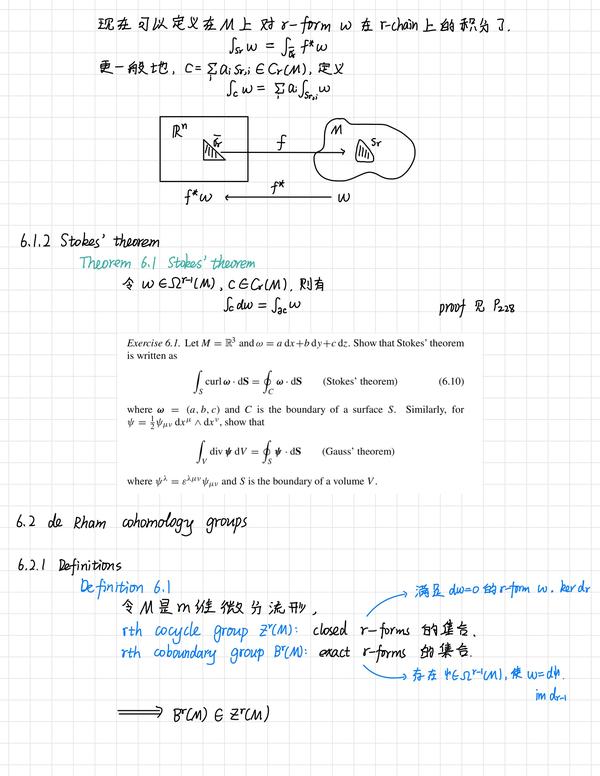 现在可以定义在M上对r-form ω 在r-chain上的积分了.
∫_{Sr} ω = ∫_{σ̄r} f*ω
更一般地, C = ∑ aᵢ Sr,ᵢ ∈ Cr(M), 定义
∫_c ω = ∑ aᵢ ∫_{Sr,i} ω
ℝⁿ σ̄r f M Sr
f*ω f* ω
6.1.2 Stokes' theorem
Theorem 6.1 Stokes' theorem
令 ω ∈ Ω^{r-1}(M), c ∈ Cr(M), 则有
∫_c dω = ∫_{∂c} ω proof 见 P₂₂₈
Exercise 6.1. Let M = ℝ³ and ω = a dx+b dy+c dz. Show that Stokes' theorem
is written as
∫_S curl ω · dS = ∮_C ω · dS (Stokes' theorem) (6.10)
where ω = (a, b, c) and C is the boundary of a surface S. Similarly, for
ψ = ½ψ_{μν} dx^μ ∧ dx^ν, show that
∫_V div ψ dV = ∮_S ψ · dS (Gauss' theorem)
where ψ^λ = ε^{λμν}ψ_{μν} and S is the boundary of a volume V.
6.2 de Rham cohomology groups
6.2.1 Definitions
Definition 6.1
满足 dω=0 的 r-form ω. ker dr
令 M 是 m 维微分流形,
rth cocycle group Z^r(M): closed r-forms 的集合.
rth coboundary group B^r(M): exact r-forms 的集合.
存在 ψ∈Ω^{r-1}(M), 使 ω=dψ.
im d_{r-1}
⟹ B^r(M) ∈ Z^r(M)